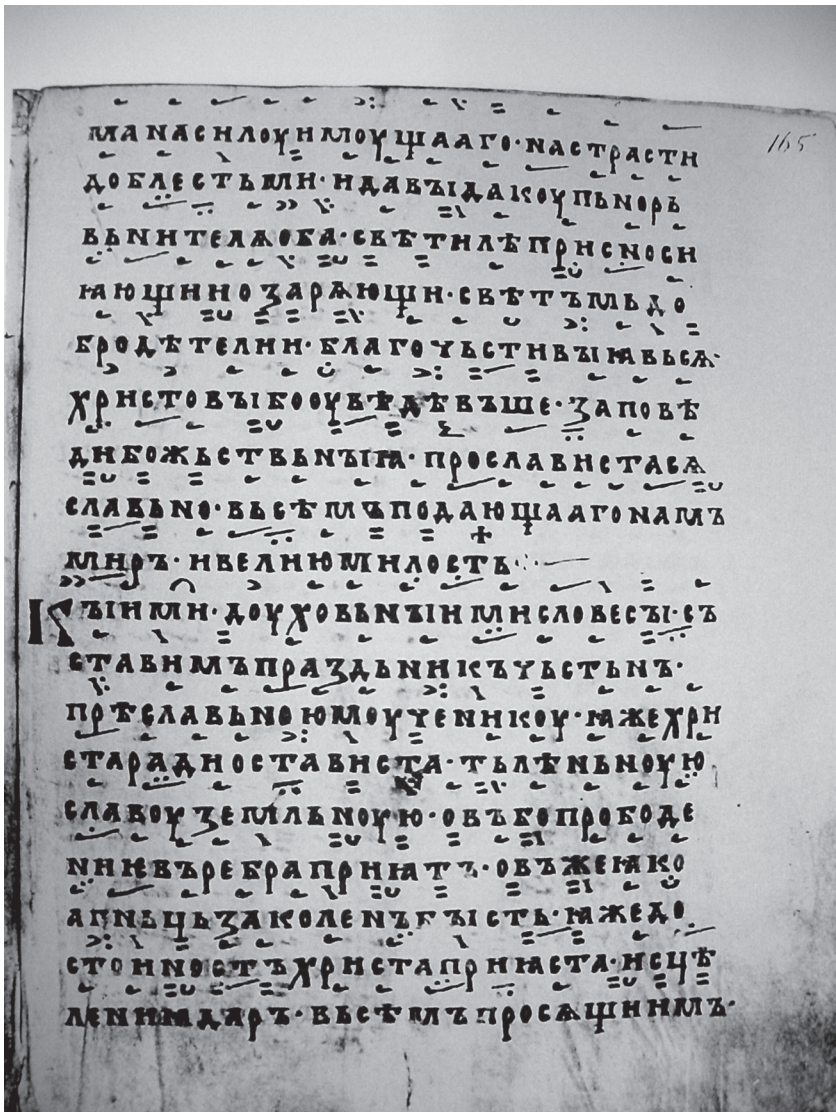 165
МАНАСИЛОУИМОУЩААГО·НАСТРАСТИ
ДОБЛЕСТЬМИ·ИДАВЪІДАКОУПЬНОРЬ
ВЬНИТЕЛѦОБА·СВѢТИЛѢПРИСНОСИ
ꙖЮЩИИОЗАРѦЮЩИ·СВѢТЪМЬДО
БРОДѢТЕЛИИ·БЛАГОЧЬСТИВЪІꙖВЬСѦ·
ХРИСТОВЪІБООУВѢДѢВЪШЕ·ЗАПОВѢ
ДИБОЖЬСТВЬНЪІꙖ·ПРОСЛАВИСТАСѦ
СЛАВЬНО·ВЬСѢМЪПОДАЮЩААГОНАМЪ
МИРЪ·ИВЕЛИЮМИЛОСТЬ·:·—
КЪІИМИ·ДОУХОВЬНЪІИМИСЛОВЕСЪІ·СЪ
СТАВИМЪПРАЗДЬНИКЪЧЬСТЬНЪ·
ПРѢСЛАВЬНОЮМОУЧЕНИКОУ·ꙖЖЕХРИ
СТАРАДИОСТАВИСТА·ТЬЛѢНЬНОУЮ
СЛАВОУЗЕМЛЬНОУЮ·ОВЪБОПРОБОДЕ
НИѤВЪРЕБРАПРИꙖТЪ·ОВЪЖЕꙖКО
АГНЬЦЬЗАКОЛЕНЪБЪІСТЬ·ꙖЖЕДО
СТОИНОСТЬХРИСТАПРИꙖСТА·ИСЦѢ
ЛЕНИꙖДАРЪ·ВЬСѢМЪПРОСѦЩИИМЪ·